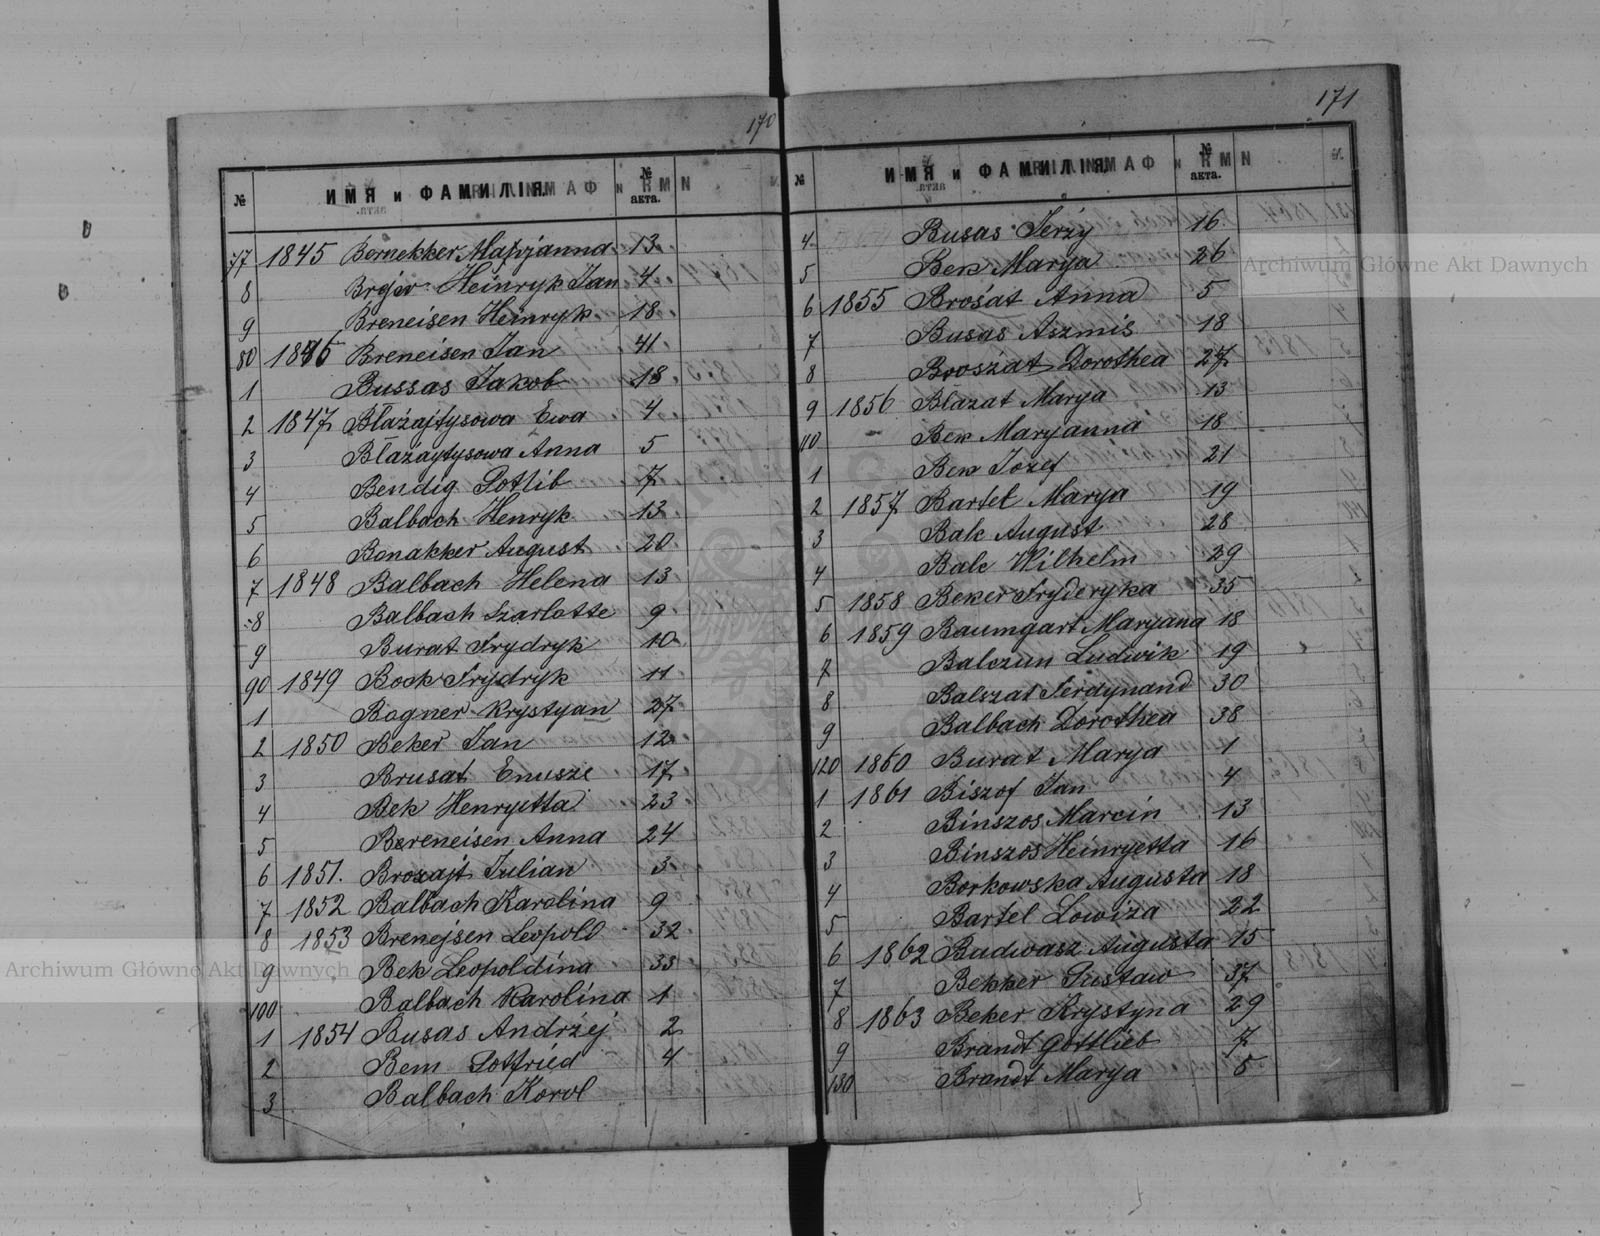 170
№ ИМЯ и ФАМИЛІЯ. № акта.
77 1845 Bernekker Maryjanna 13
8 Brejer Heinryk Jan 4
9 Breneisen Heinryk 18
80 1846 Breneisen Jan 41
1 Bussas Jakob 18
2 1847 Błażajtysowa Ewa 4
3 Błażaytysowa Anna 5
4 Bendig Gotlib 7
5 Balbach Henryk 13
6 Bonakker August 20
7 1848 Balbach Helena 13
8 Balbach Szarlotte 9
9 Burat Frydryk 10
90 1849 Bock Frydryk 11
1 Bogner Krystyan 27
2 1850 Beker Jan 12
3 Brusat Enusze 17
4 Bek Henryetta 23
5 Bereneisen Anna 24
6 1851. Brozajt Julian 3
7 1852 Balbach Karolina 9
8 1853 Brenejsen Leopold 32
9 Bek Leopoldina 33
100 Balbach Karolina 1
1 1854 Busas Andrzej 2
2 Bem Gottfried 4
3 Balbach Karol
171
№ ИМЯ и ФАМИЛІЯ. № акта.
4 Busas Jerzy 16
5 Bek Marya 26
6 1855 Brośat Anna 5
7 Busas Aszmis 18
8 Broszat Dorothea 27
9 1856 Błazat Marya 13
110 Bek Maryanna 18
1 Bek Jozef 21
2 1857 Bartel Marya 19
3 Bak August 28
4 Balc Wilhelm 29
5 1858 Beker Fryderyka 35
6 1859 Baumgart Maryana 18
7 Balczun Ludwik 19
8 Balszat Ferdynand 30
9 Balbach Dorothea 38
120 1860 Burat Marya 1
1 1861 Biszof Jan 4
2 Binszos Marcin 13
3 Binszos Heinryetta 16
4 Borkowska Augusta 18
5 Bartel Lowiza 22
6 1862 Budwasz Augusta 15
7 Bekker Gustaw 37
8 1863 Beker Krystyna 29
9 Brandt Gottlieb 7
130 Brandt Marya 5
Archiwum Główne Akt Dawnych
Archiwum Główne Akt Dawnych